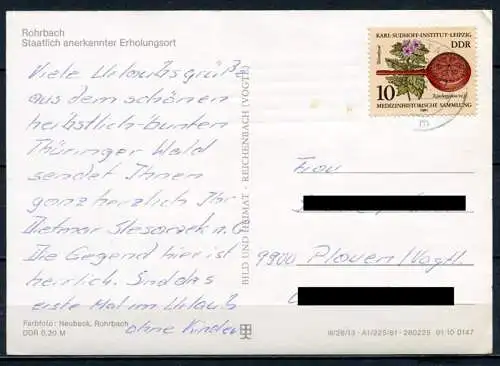 Rohrbach
Staatlich anerkannter Erholungsort
Viele Urlaubsgrüße
aus dem schönen
herbstlich-bunten
Thüringer Wald
sendet Ihnen
ganz herzlich Ihr
Dietmar
Die Gegend hier ist
herrlich. Sind das
erste Mal im Urlaub
ohne Kinder
Farbfoto: Neubeck, Rohrbach
DDR 0,20 M
BILD UND HEIMAT · REICHENBACH (VOGTL)
KARL-SUDHOFF-INSTITUT·LEIPZIG
DDR
10
MEDIZINHISTORISCHE SAMMLUNG
Frau
9900 Plauen/Vogtl.
III/26/13 · A1/225/81 · 280225 01 10 0147